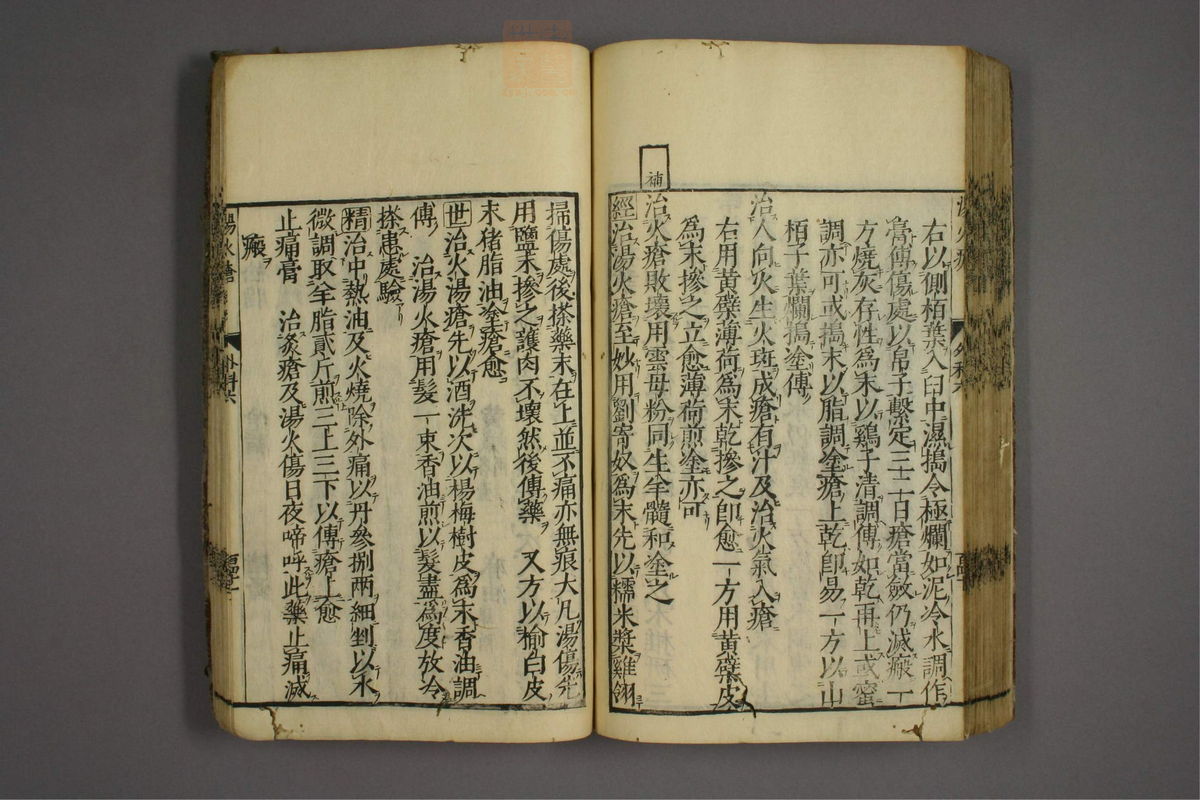 右以側栢葉入臼中濕搗令極爛如泥冷水調作
膏傅傷處以帛子繫定三二日瘡當斂仍滅瘢一
方燒灰存性為末以鷄子清調傅如乾再上或蜜
調亦可或搗末以脂調塗瘡上乾即易一方以山
栢子葉爛搗塗傅
治人向火生火斑成瘡有汁及治火氣入瘡
右用黃蘗薄荷為末乾摻之即愈一方用黃蘗皮
為末摻之立愈薄荷煎塗亦可
補
治火瘡敗壞用雲母粉同生羊髓和塗之
經治湯火瘡至妙用劉寄奴為末先以糯米漿雞翎
掃傷處後搽藥末在上並不痛亦無痕大凡湯傷先
用鹽末摻之護肉不壞然後傅藥 又方以榆白皮
末猪脂油塗瘡愈
世治火湯瘡先以酒洗次以楊梅樹皮為末香油調
傅 治湯火瘡用髮一束香油煎以髮盡為度放冷
搽患處驗
精治中熱油及火燒除外痛以丹參捌兩細剉以水
微調取羊脂貳斤煎三上三下以傅瘡上愈
止痛膏 治灸瘡及湯火傷日夜啼呼此藥止痛滅
瘢
湯火瘡 外科六